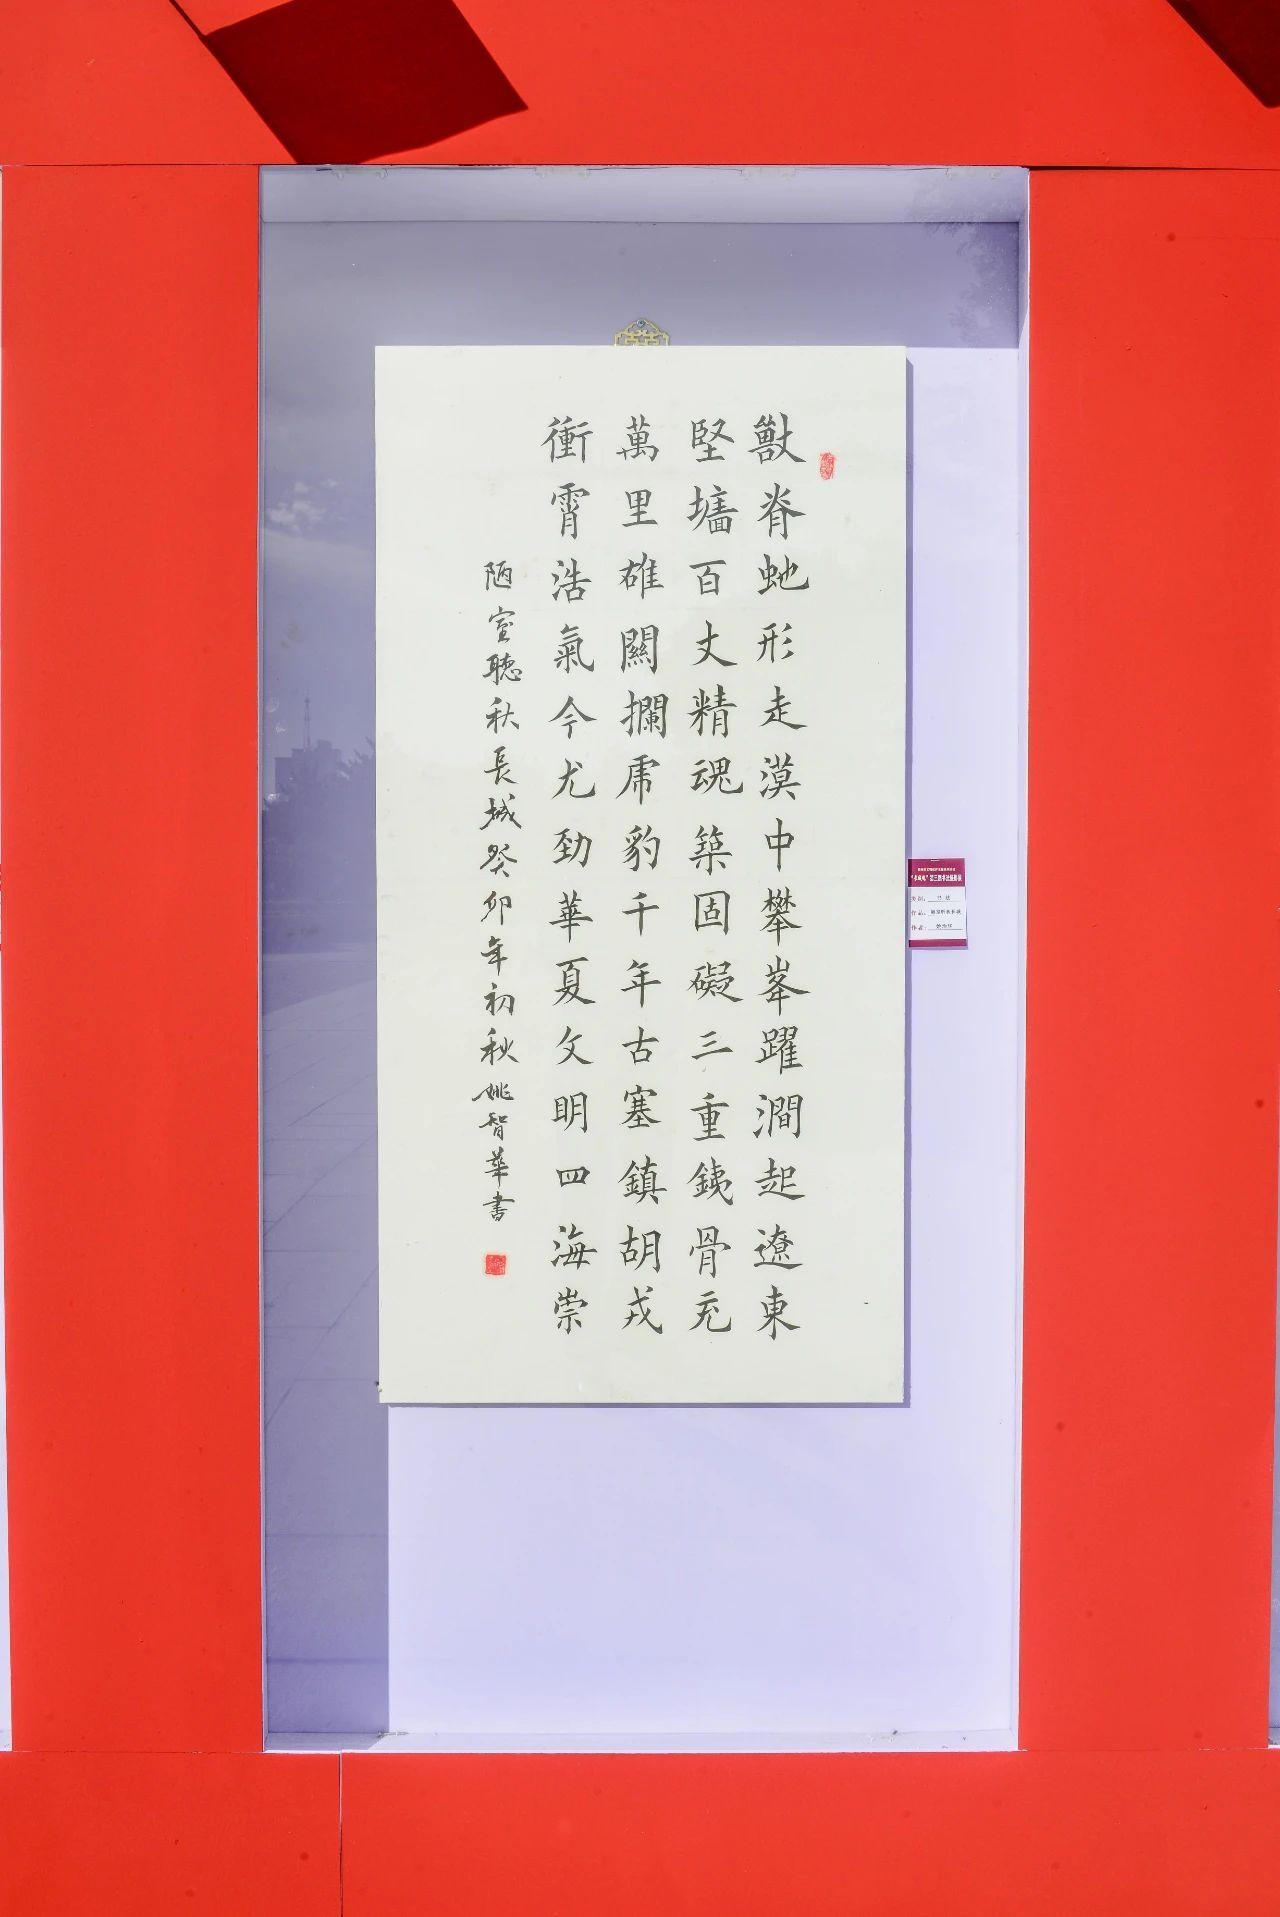 獸脊虵形走漠中攀峯躍澗起遼東
堅墻百丈精魂築固礙三重銕骨充
萬里雄關攔虎豹千年古塞鎮胡戎
衝霄浩氣今尤勁華夏文明四海崇
陋室聽秋長城癸卯年初秋姚智華書
第三届书法摄影展
类别：书法
作品：
作者：